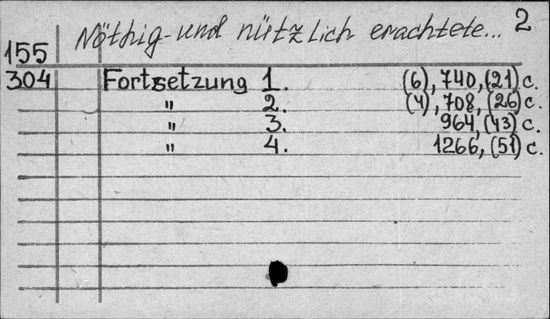 Nöthig-und nützlich erachtete... 2
155
304 Fortsetzung 1. (6), 740, (21) c.
" 2. (4), 708, (26) c.
" 3. 964, (43) c.
" 4. 1266, (51) c.